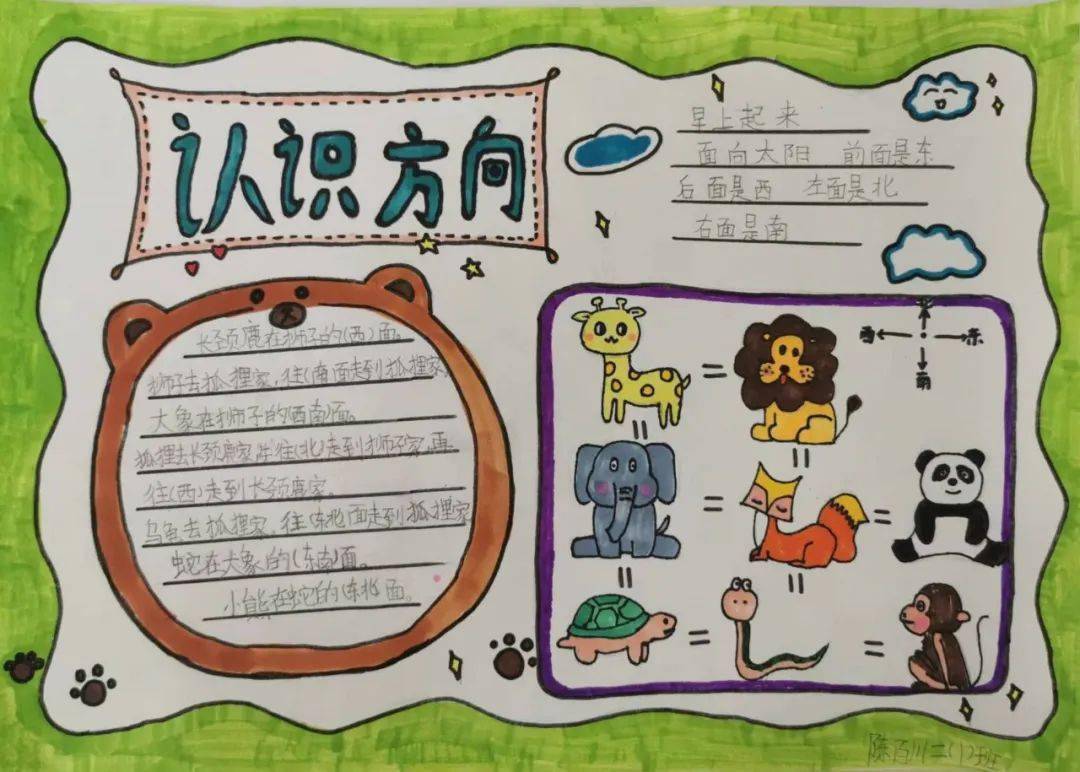 认识方向
早上起来
面向太阳 前面是东
后面是西 左面是北
右面是南
长颈鹿在狮子的(西)面。
狮子去狐狸家,往(南)面走到狐狸家,
大象在狮子的(西南)面。
狐狸去长颈鹿家往(北)走到狮子家,再
往(西)走到长颈鹿家。
乌龟去狐狸家,往(东北)面走到狐狸家
蛇在大象的(东南)面。
小熊在蛇的(东北)面。
北
西 东
南
陈百川二(1)班